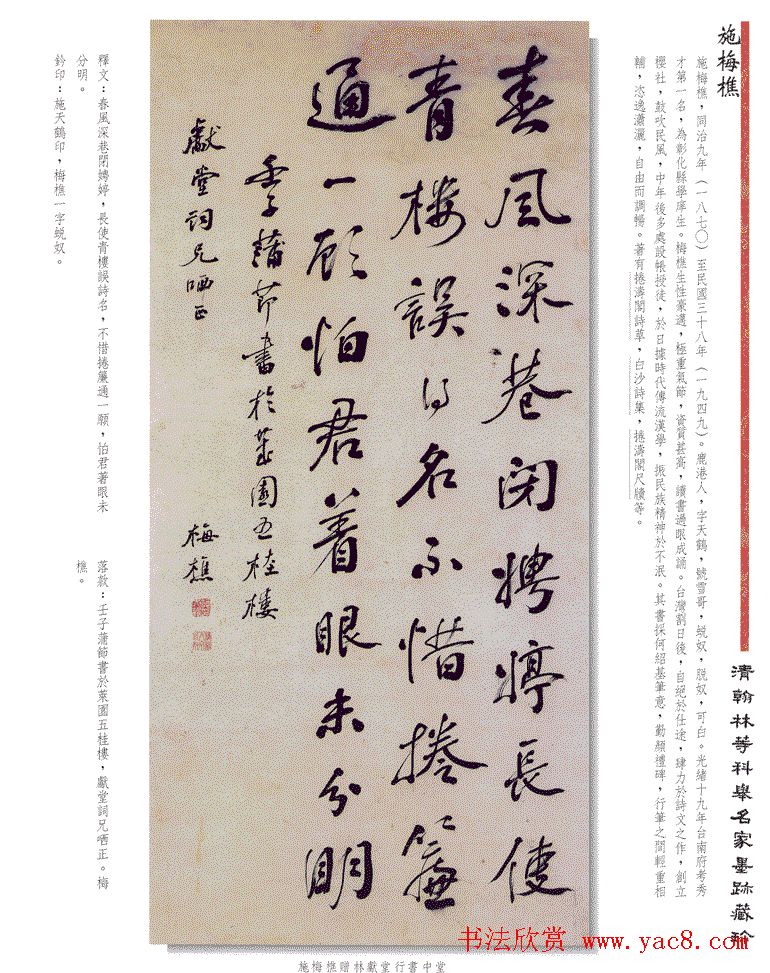 清翰林等科舉名家墨跡藏珍
施梅樵
施梅樵，同治九年（一八七〇）至民國三十八年（一九四九）。鹿港人，字天鶴，號雪哥，蛻奴，脫奴，可白。光緒十九年台南府考秀
才第一名，為彰化縣學庠生。梅樵生性豪邁，極重氣節，資質甚高，讀書過眼成誦。台灣割日後，自絕於仕途，肆力於詩文之作，創立
櫻社，鼓吹民風，中年後多處設帳授徒，於日據時代傳流漢學，振民族精神於不泯。其書採何紹基筆意，勤顏禮碑，行筆之間輕重相
輔，恣逸瀟灑，自由而調暢。著有捲濤閣詩草，白沙詩集，捲濤閣尺牘等。
春風深巷閉娉婷長使
青樓誤得名不惜捲簾
通一顧怕君着眼未分明
壬子蒲節書於萊園五桂樓
獻堂詞兄哂正
梅樵
釋文：春風深巷閉娉婷，長使青樓誤詩名，不惜捲簾通一願，怕君著眼未
分明。
鈐印：施天鶴印，梅樵一字蛻奴。
落款：壬子蒲節書於萊園五桂樓，獻堂詞兄哂正。梅
樵。
书法欣赏 www.yac8.com
施梅樵贈林獻堂行書中堂